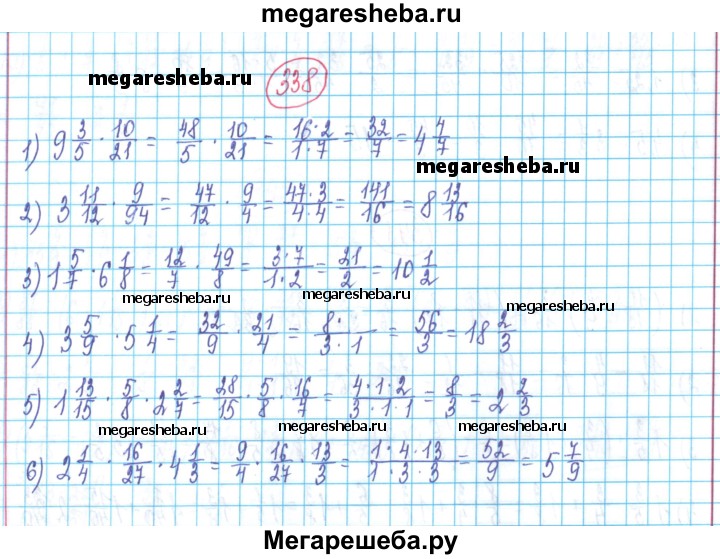 megaresheba.ru
megaresheba.ru
338
1) 9 3/5 · 10/21 = 48/5 · 10/21 = 16·2/1·7 = 32/7 = 4 4/7
megaresheba.ru
2) 3 11/12 · 9/94 = 47/12 · 9/4 = 47·3/4·4 = 141/16 = 8 13/16
3) 1 5/7 · 6 1/8 = 12/7 · 49/8 = 3·7/1·2 = 21/2 = 10 1/2
megaresheba.ru megaresheba.ru
megaresheba.ru
4) 3 5/9 · 5 1/4 = 32/9 · 21/4 = 8·/3·1 = 56/3 = 18 2/3
5) 1 13/15 · 5/8 · 2 2/7 = 28/15 · 5/8 · 16/7 = 4·1·2/3·1·1 = 8/3 = 2 2/3
megaresheba.ru megaresheba.ru megaresheba.ru
6) 2 1/4 · 16/27 · 4 1/3 = 9/4 · 16/27 · 13/3 = 1·4·13/1·3·3 = 52/9 = 5 7/9
Мегарешеба.ру